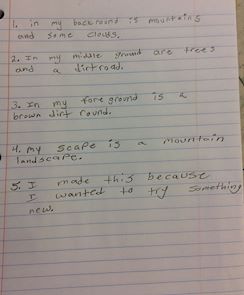 1. in my backround is mountains
and some clouds.
2. In my middle ground are trees
and a dirtroad.
3. In my fore ground is a
brown dirt round.
4. My scape is a mountain
landscape.
5. I made this because
I wanted to try something
new.